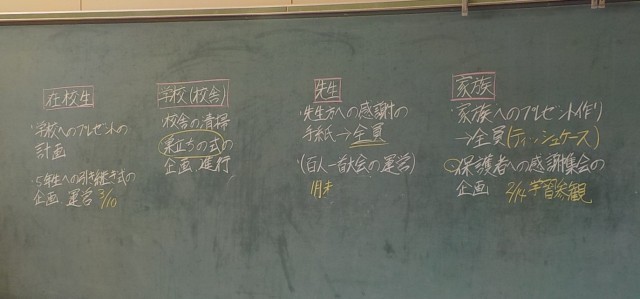 在校生
・学校へのプレゼントの
計画
・5年生への引き継ぎ式の
企画 運営 3/10
学校(校舎)
校舎の清掃
巣立ちの式の
企画 進行
先生
・先生方への感謝の
手紙→全員
・(百人一首大会の運営)
1月末
家族
・家族へのプレゼント作り
→全員(ティッシュケース)
保護者への感謝集会の
企画 2/14 学習参観